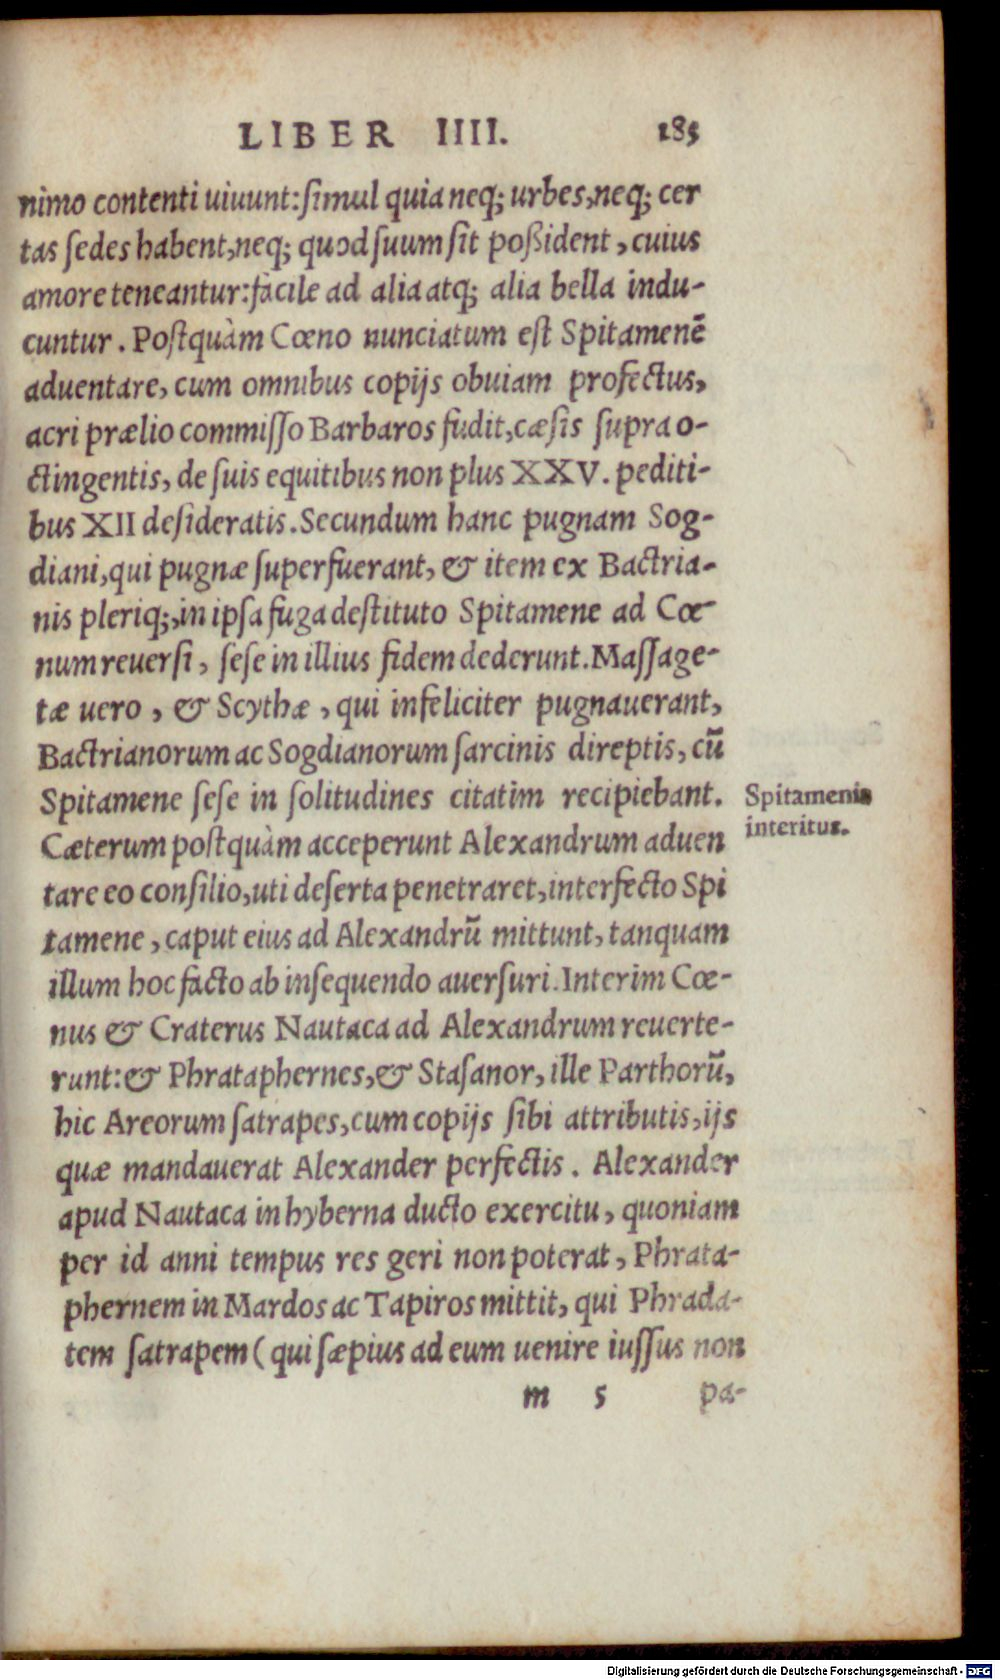 LIBER IIII. 185
nimo contenti uiuunt: simul quia neq; urbes, neq; cer
tas sedes habent, neq; quod suum sit poßident, cuius
amore teneantur: facile ad alia atq; alia bella indu-
cuntur. Postquàm Cœno nunciatum est Spitamenē
aduentare, cum omnibus copijs obuiam profectus,
acri prælio commisso Barbaros fudit, cæsis supra o-
ctingentis, de suis equitibus non plus XXV. pediti-
bus XII desideratis. Secundum hanc pugnam Sog-
diani, qui pugnæ superfuerant, & item ex Bactria-
nis pleriq;, in ipsa fuga destituto Spitamene ad Cœ-
num reuersi, sese in illius fidem dederunt. Massage-
tæ uero, & Scythæ, qui infeliciter pugnauerant,
Bactrianorum ac Sogdianorum sarcinis direptis, cū
Spitamene sese in solitudines citatim recipiebant.
Cæterum postquàm acceperunt Alexandrum aduen
tare eo consilio, uti deserta penetraret, interfecto Spi
tamene, caput eius ad Alexandrū mittunt, tanquam
illum hoc facto ab insequendo auersuri. Interim Cœ-
nus & Craterus Nautaca ad Alexandrum reuerte-
runt: & Phrataphernes, & Stasanor, ille Parthorū,
hic Areorum satrapes, cum copijs sibi attributis, ijs
quæ mandauerat Alexander perfectis. Alexander
apud Nautaca in hyberna ducto exercitu, quoniam
per id anni tempus res geri non poterat, Phrata-
phernem in Mardos ac Tapiros mittit, qui Phrada-
tem satrapem (qui sæpius ad eum uenire iussus non
m 5 pa-
Spitamenis
interitus.
Digitalisierung gefördert durch die Deutsche Forschungsgemeinschaft - DFG